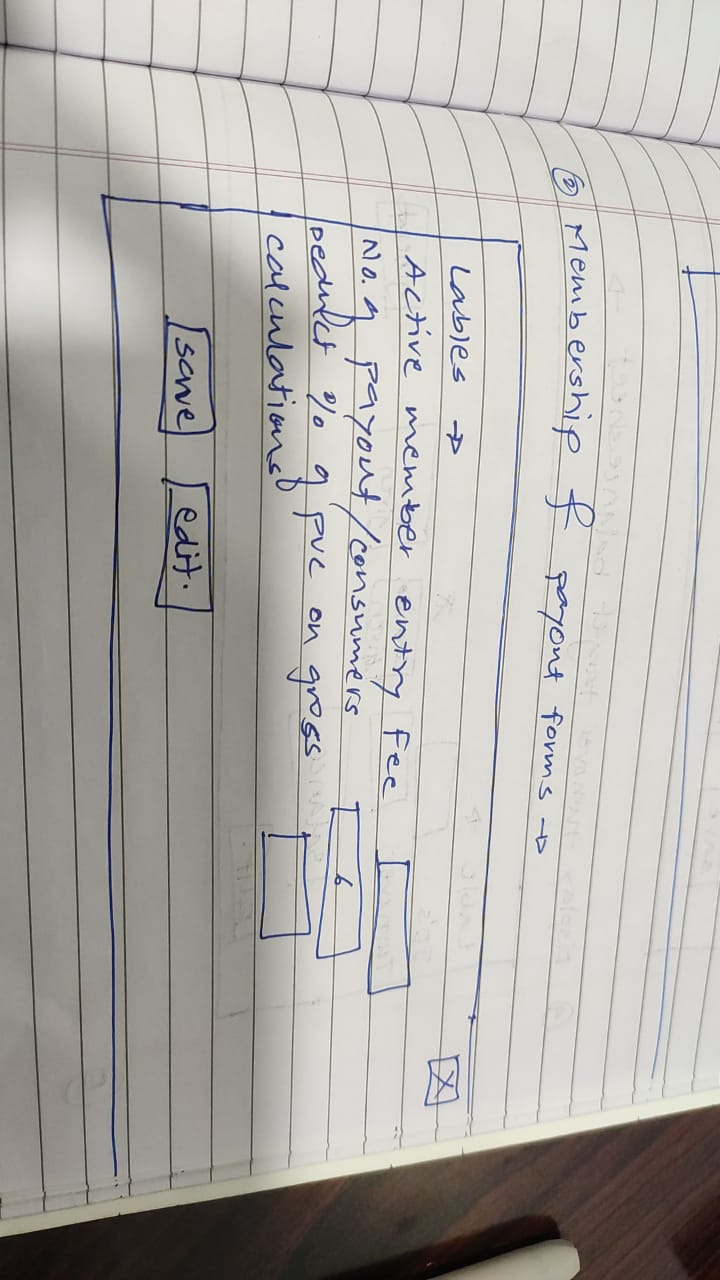 ② Membership & payout forms →
Lables →
X
Active member entry Fee
No. of payout/consumers 6
Deduct % of pvc on gross
calculations
save edit.